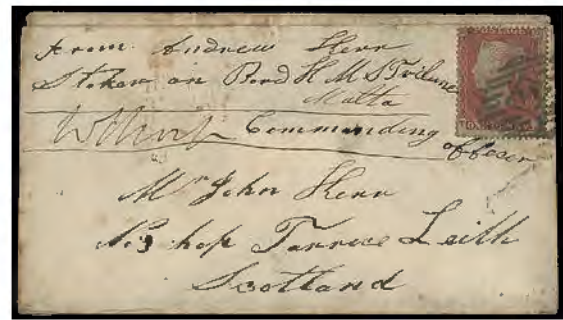 From Andrew Kerr
Stoker on Bord H M S Tribune
Malta
Commanding offecer
Mr John Kerr
No 3 hope Terrace Leith
Scotland